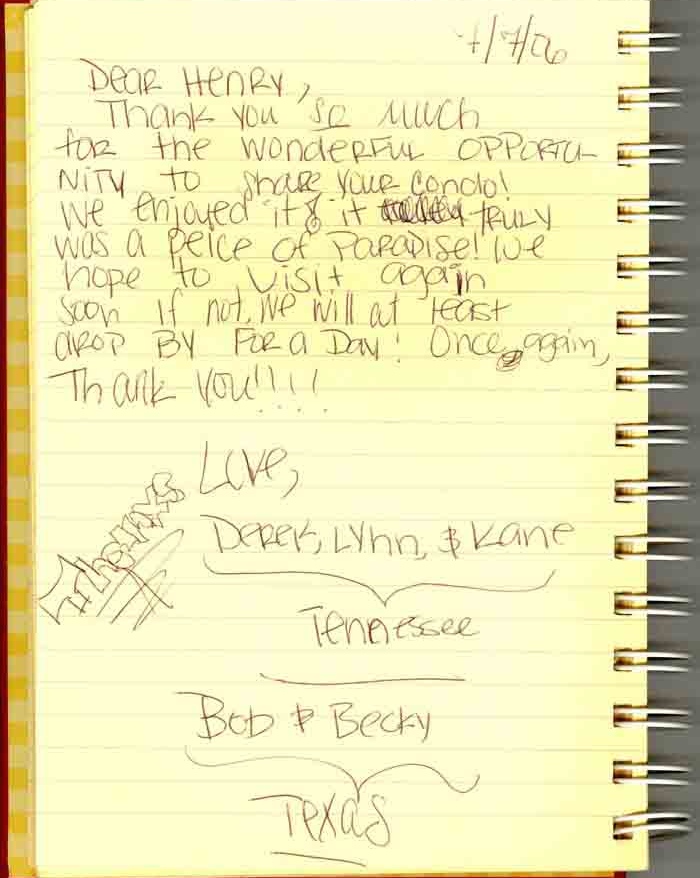 7/7/06
Dear Henry,
Thank you so much
for the wonderful opportu-
nity to share your condo!
We enjoyed it & it truly
was a peice of Paradise! We
hope to visit again
soon if not, we will at least
drop by for a day! Once again,
Thank you!!!!
Love,
Thanks
Derek, Lynn, & Kane
Tennessee
Bob & Becky
Texas